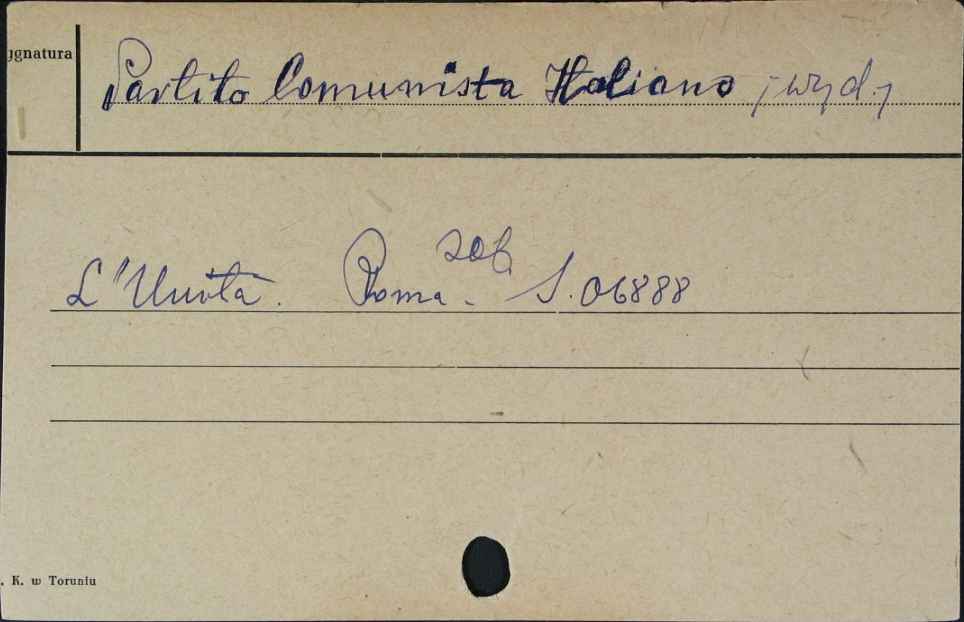 ygnatura
Partito Comunista Italiano /wyd./
L'Unità. Roma - zob S. 06888
. K. w Toruniu